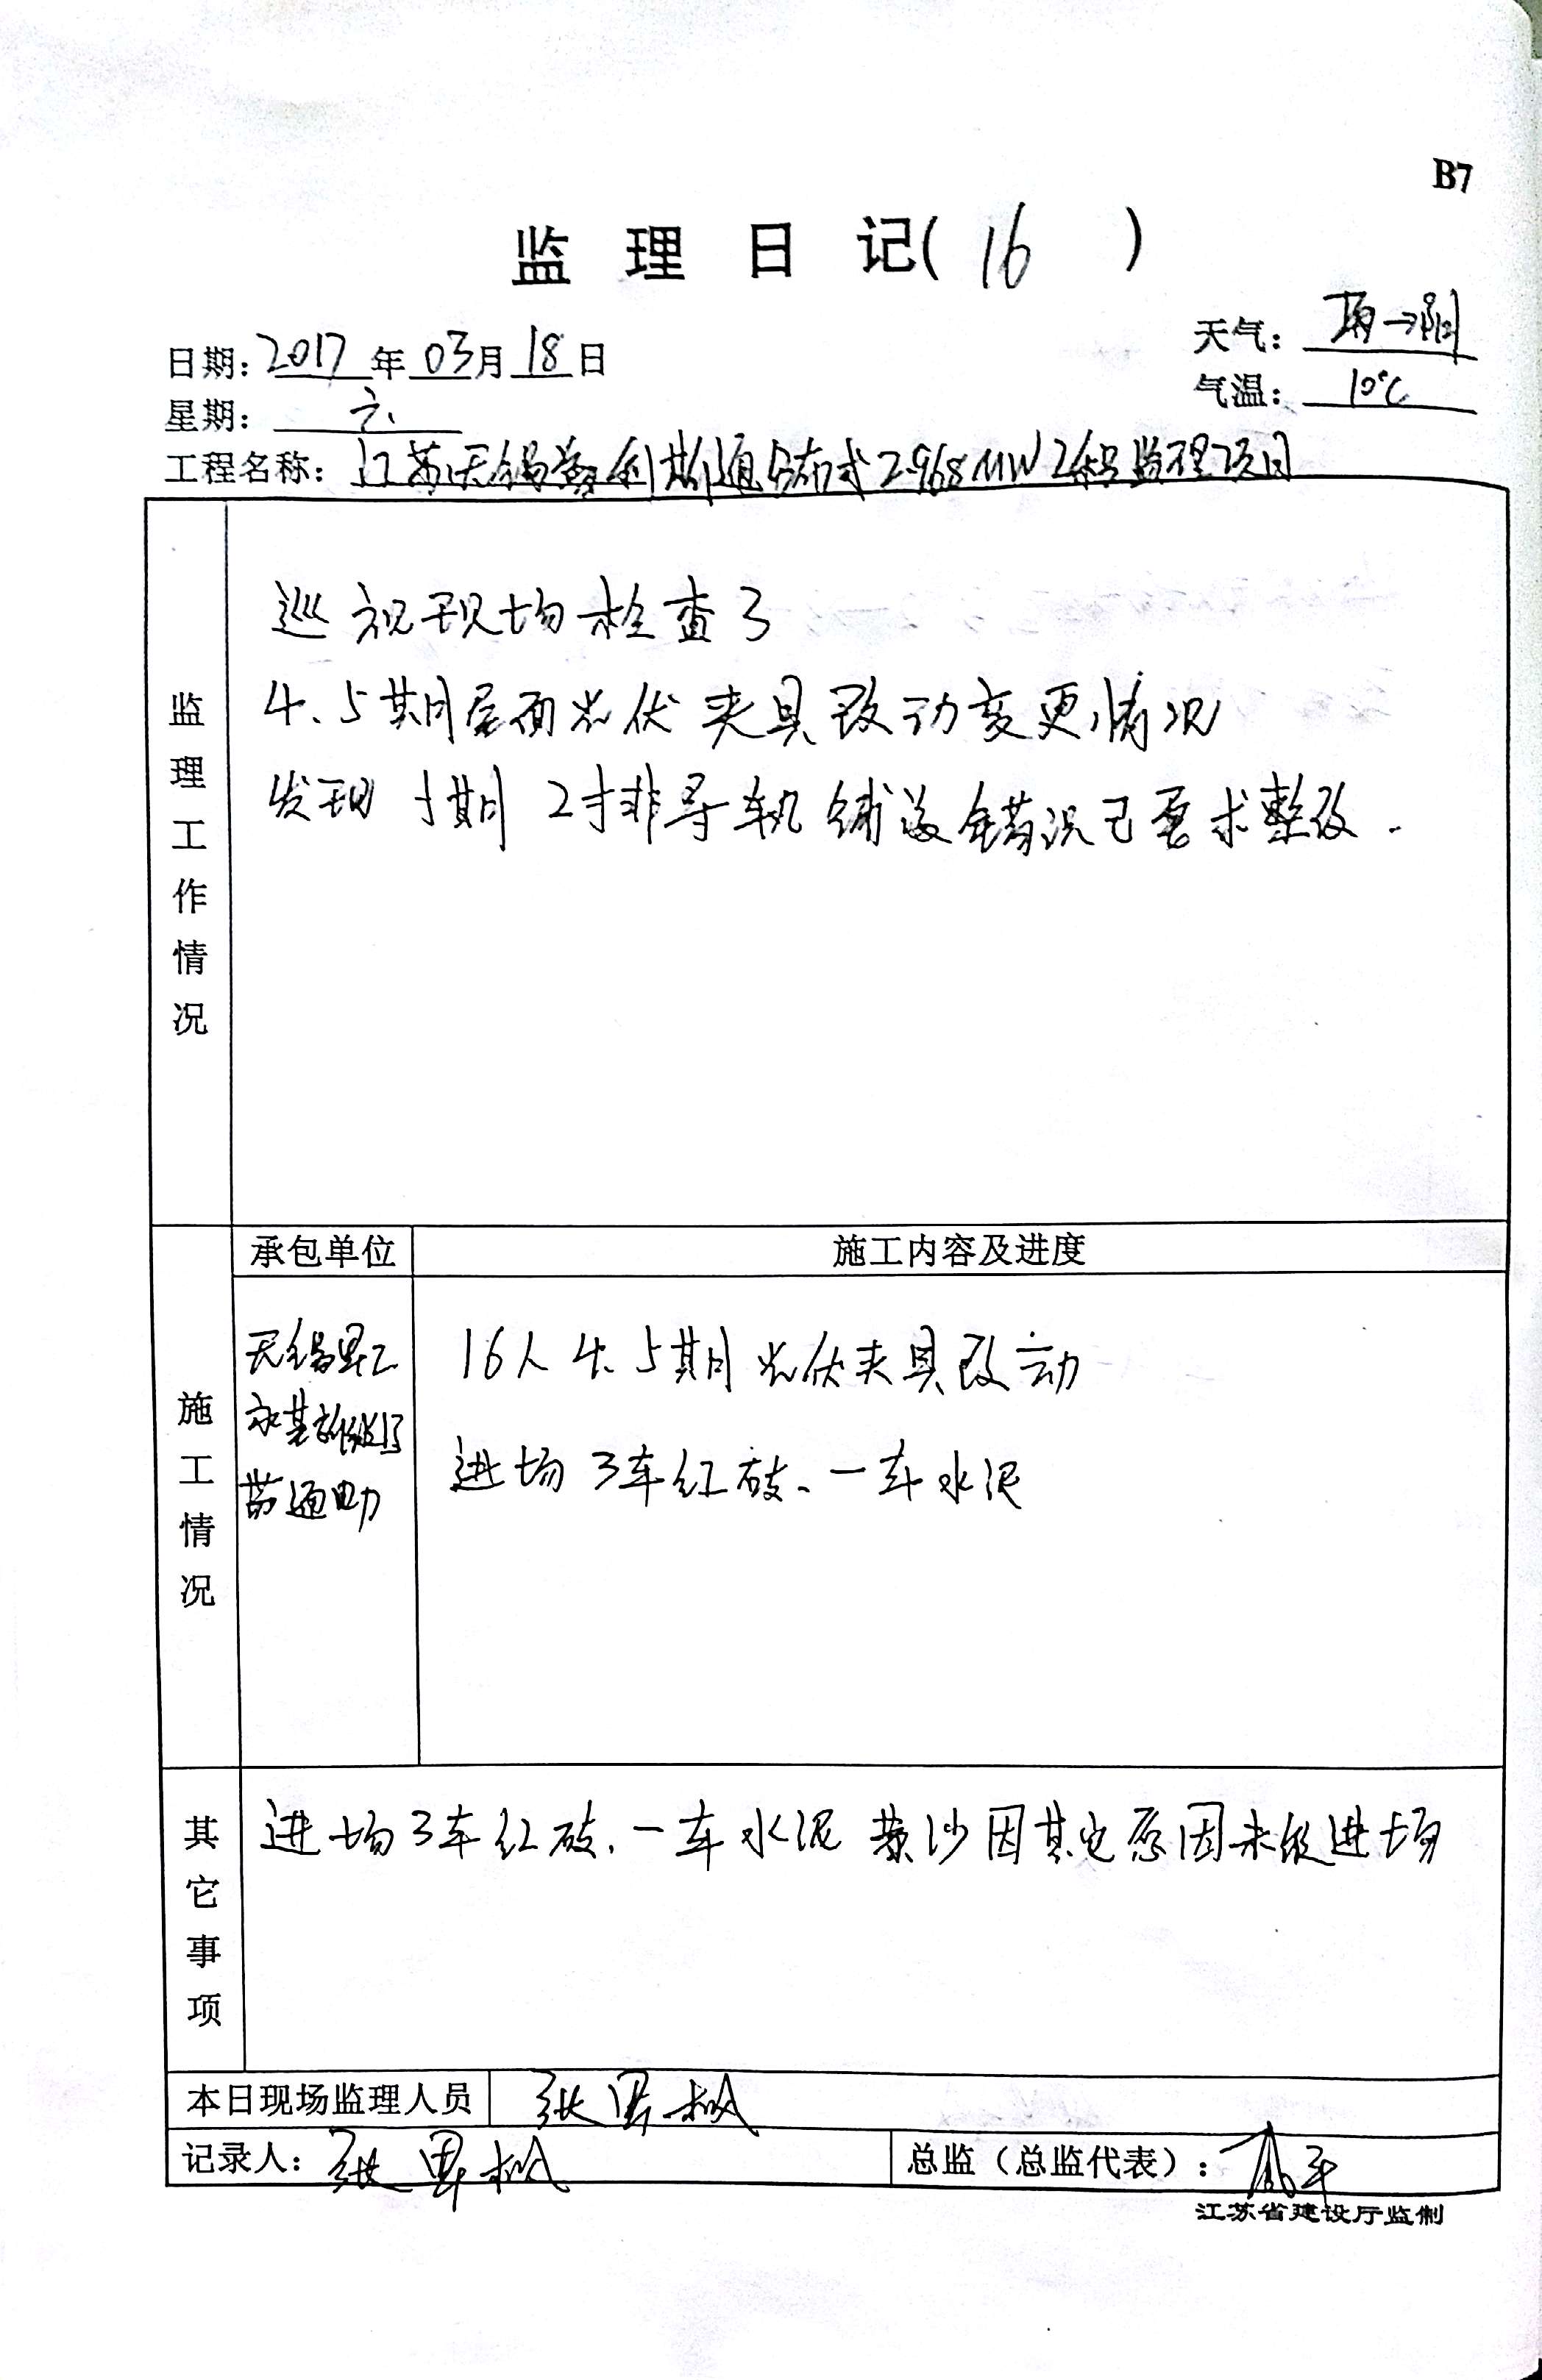 B7
监理日记(16)
日期:2017年03月18日
天气:雨→阴
星期:六
气温:10℃
工程名称:江苏无锡利通分布式2.968MW工程监理项目
监理工作情况
巡视现场检查了
4、5期屋面光伏夹具改动变更情况
发现5期2排导轨铺设错况已要求整改.
承包单位
施工内容及进度
施工情况
无锡
永基
苗通电力
16人4、5期光伏夹具改动
进场3车红砖、一车水泥
其它事项
进场3车红砖、一车水泥 黄沙因其它原因未能进场
本日现场监理人员
张
记录人:张
总监（总监代表）:
江苏省建设厅监制